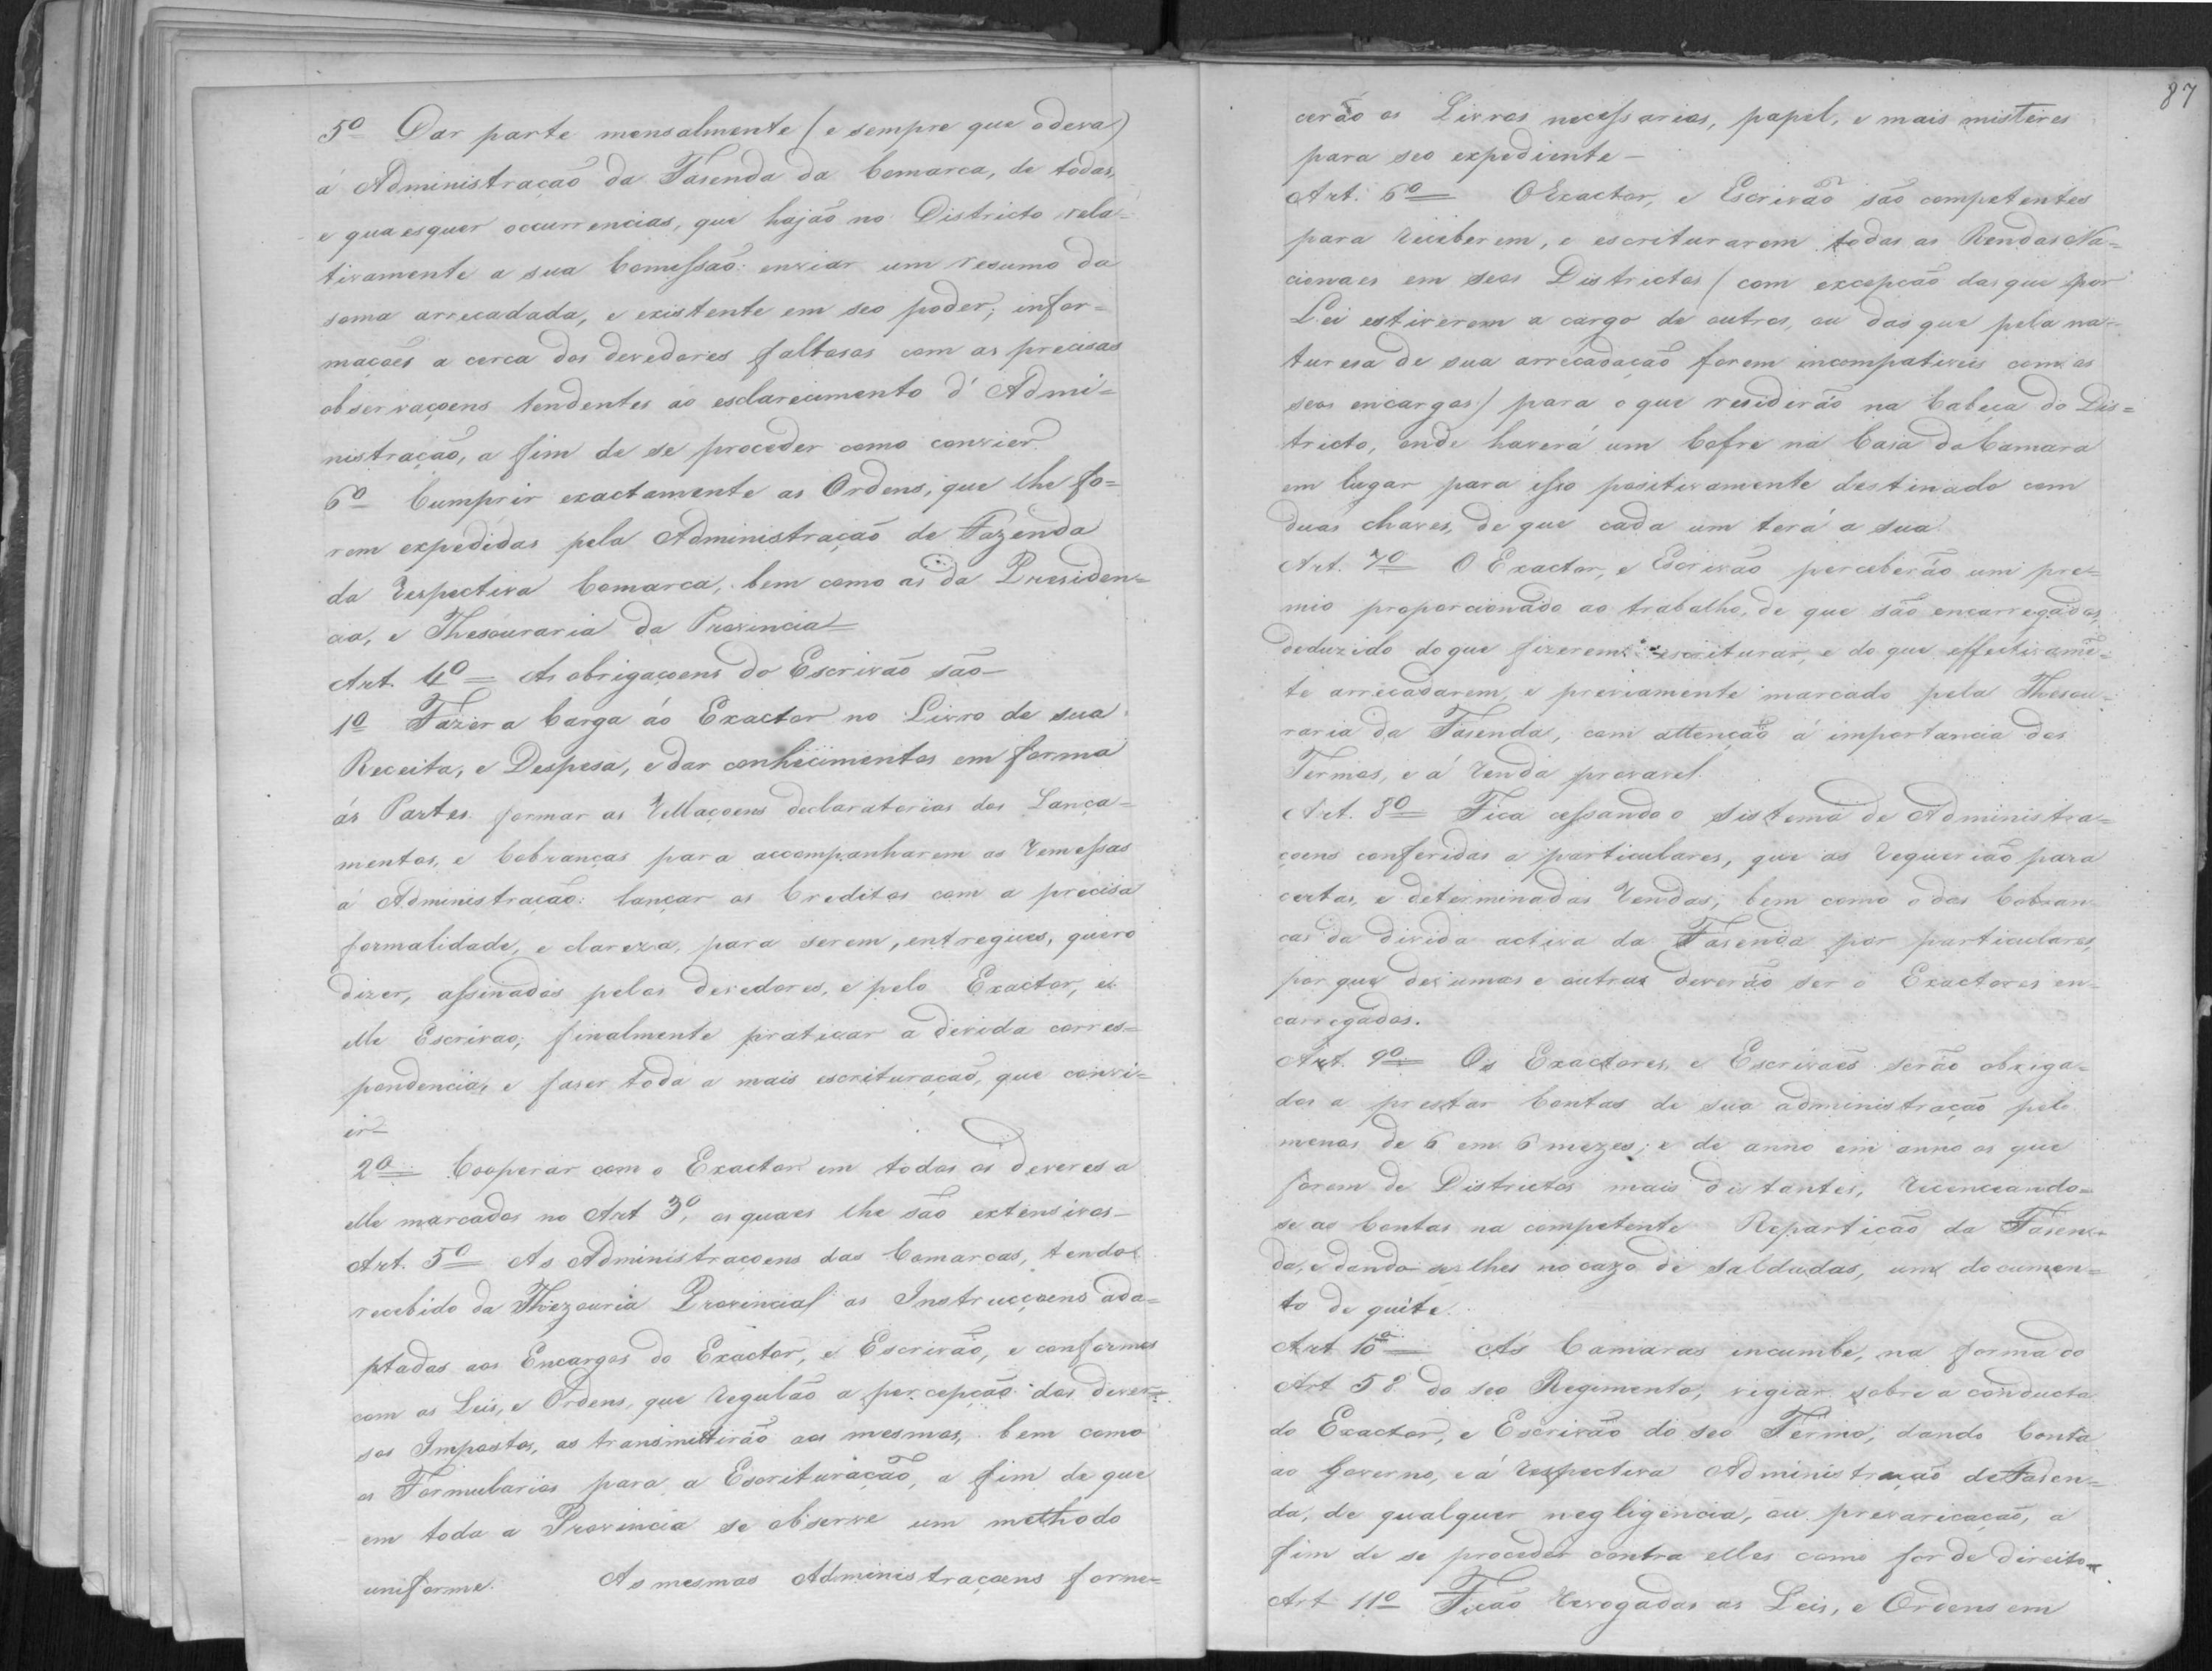 5º Dar parte mensalmente (e sempre que o deva)
á Administração da Fasenda da Comarca, de todas,
e quaesquer occurrencias, que hajão no Districto rela-
tivamente a sua Comissaõ: enviar um resumo da
soma arrecadada, e existente em seo poder; infor=
maçoẽs a cerca dos devedores faltosos com as precisas
observaçoens tendentes ao esclarecimento d'Admi=
nistração, a fim de se proceder como convier
6º Cumprir exactamente as Ordens, que lhe fo=
rem expedidas pela Administração de Fazenda
da respectiva Comarca, bem como as da Presiden=
cia, e Thesouraria da Provincia=
Art. 4º= As obrigaçoens do Escrivão são-
1º Fazer a Carga áo Exactor no Livro de sua
Receita, e Despesa, e dar conhecimentos em forma
ás Partes: formar as rellaçoens declaratorias dos Lança=
mentos, e Cobranças para accompanharem as remessas
á Administração: lançar os Creditos com a precisa
formalidade, e clareza, para serem, entregues, quero
dizer, assinados pelos devedores, e pelo Exactor, e
elle Escrivaõ; finalmente praticar a devida corres=
pondencia, e faser toda a mais escrituração, que convi=
ir-
2º= Cooperar com o Exactor em todos os deveres a
elle marcados no Art 3º, os quaes lhe são extensivos-
Art. 5º= As Administraçoens das Comarcas, tendo
recebido da Thezouria Provincial as Instrucçoens ada=
ptadas aos Encargos do Exactor, e Escrivão, e conformes
com as Leis, e Ordens, que regulão a percepção dos diver=
sos Impostos, as transmittirão aos mesmos, bem como
os Formularios para a Escrituração, a fim de que
em toda a Provincia se observe um methodo
uniforme. As mesmas Administraçoens forne=
87
cerão os Livros necessarios, papel, e mais misteres
para seo expediente-
Art. 6º= O Exactor, e Escrivão são competentes
para receberem, e escriturarem todas as Rendas Na=
cionaes em seos Districtos (com excepção das que por
Lei estiverem a cargo de outros, ou das que pela na=
turesa de sua arrecadação forem incompativeis com os
seos encargos) para o que residirão na Cabeça do Dis=
tricto, onde haverá um Cofre na Casa da Camara
em lugar para isso positivamente destinado com
duas chaves, de que cada um terá a sua.
Art. 7º O Exactor, e Escrivão perceberão um pre=
mio proporcionado ao trabalho, de que são encarregados,
deduzido do que fizerem escriturar, e do que effectivamẽ=
te arrecadarem, e previamente marcado pela Thesou=
raria da Fasenda, com attenção á importancia dos
Termos, e á renda provavel.
Art. 8º= Fica cessando o sistema de Administra=
çoens conferidas a particulares, que as requerião para
certas, e determinadas rendas, bem como o das Cobran=
cas da divida activa da Fasenda por particulares,
porque de umas e outras deverão ser o Exactores en=
carregados.
Art. 9º= Os Exactores, e Escrivaẽs serão obriga=
dos a prestar Contas de sua administração pelo
menos de 6 em 6 mezes; e de anno em anno os que
forem de Districtos mais distantes, recenceando=
se as Contas na competente Repartição da Fasen=
da, e dando-se lhes no cazo de saldadas, um documen=
to de quite.
Art 10º= Ás Camaras incumbe, na forma do
Art 58 do seo Regimento, vigiar sobre a conducta
do Exactor, e Escrivão do seo Termo, dando Conta
ao Governo, e á respectiva Administração de Fasen=
da, de qualquer negligencia, ou prevaricação, a
fim de se proceder contra elles como for de direito-
Art 11º Ficão revogadas as Leis, e Ordens em